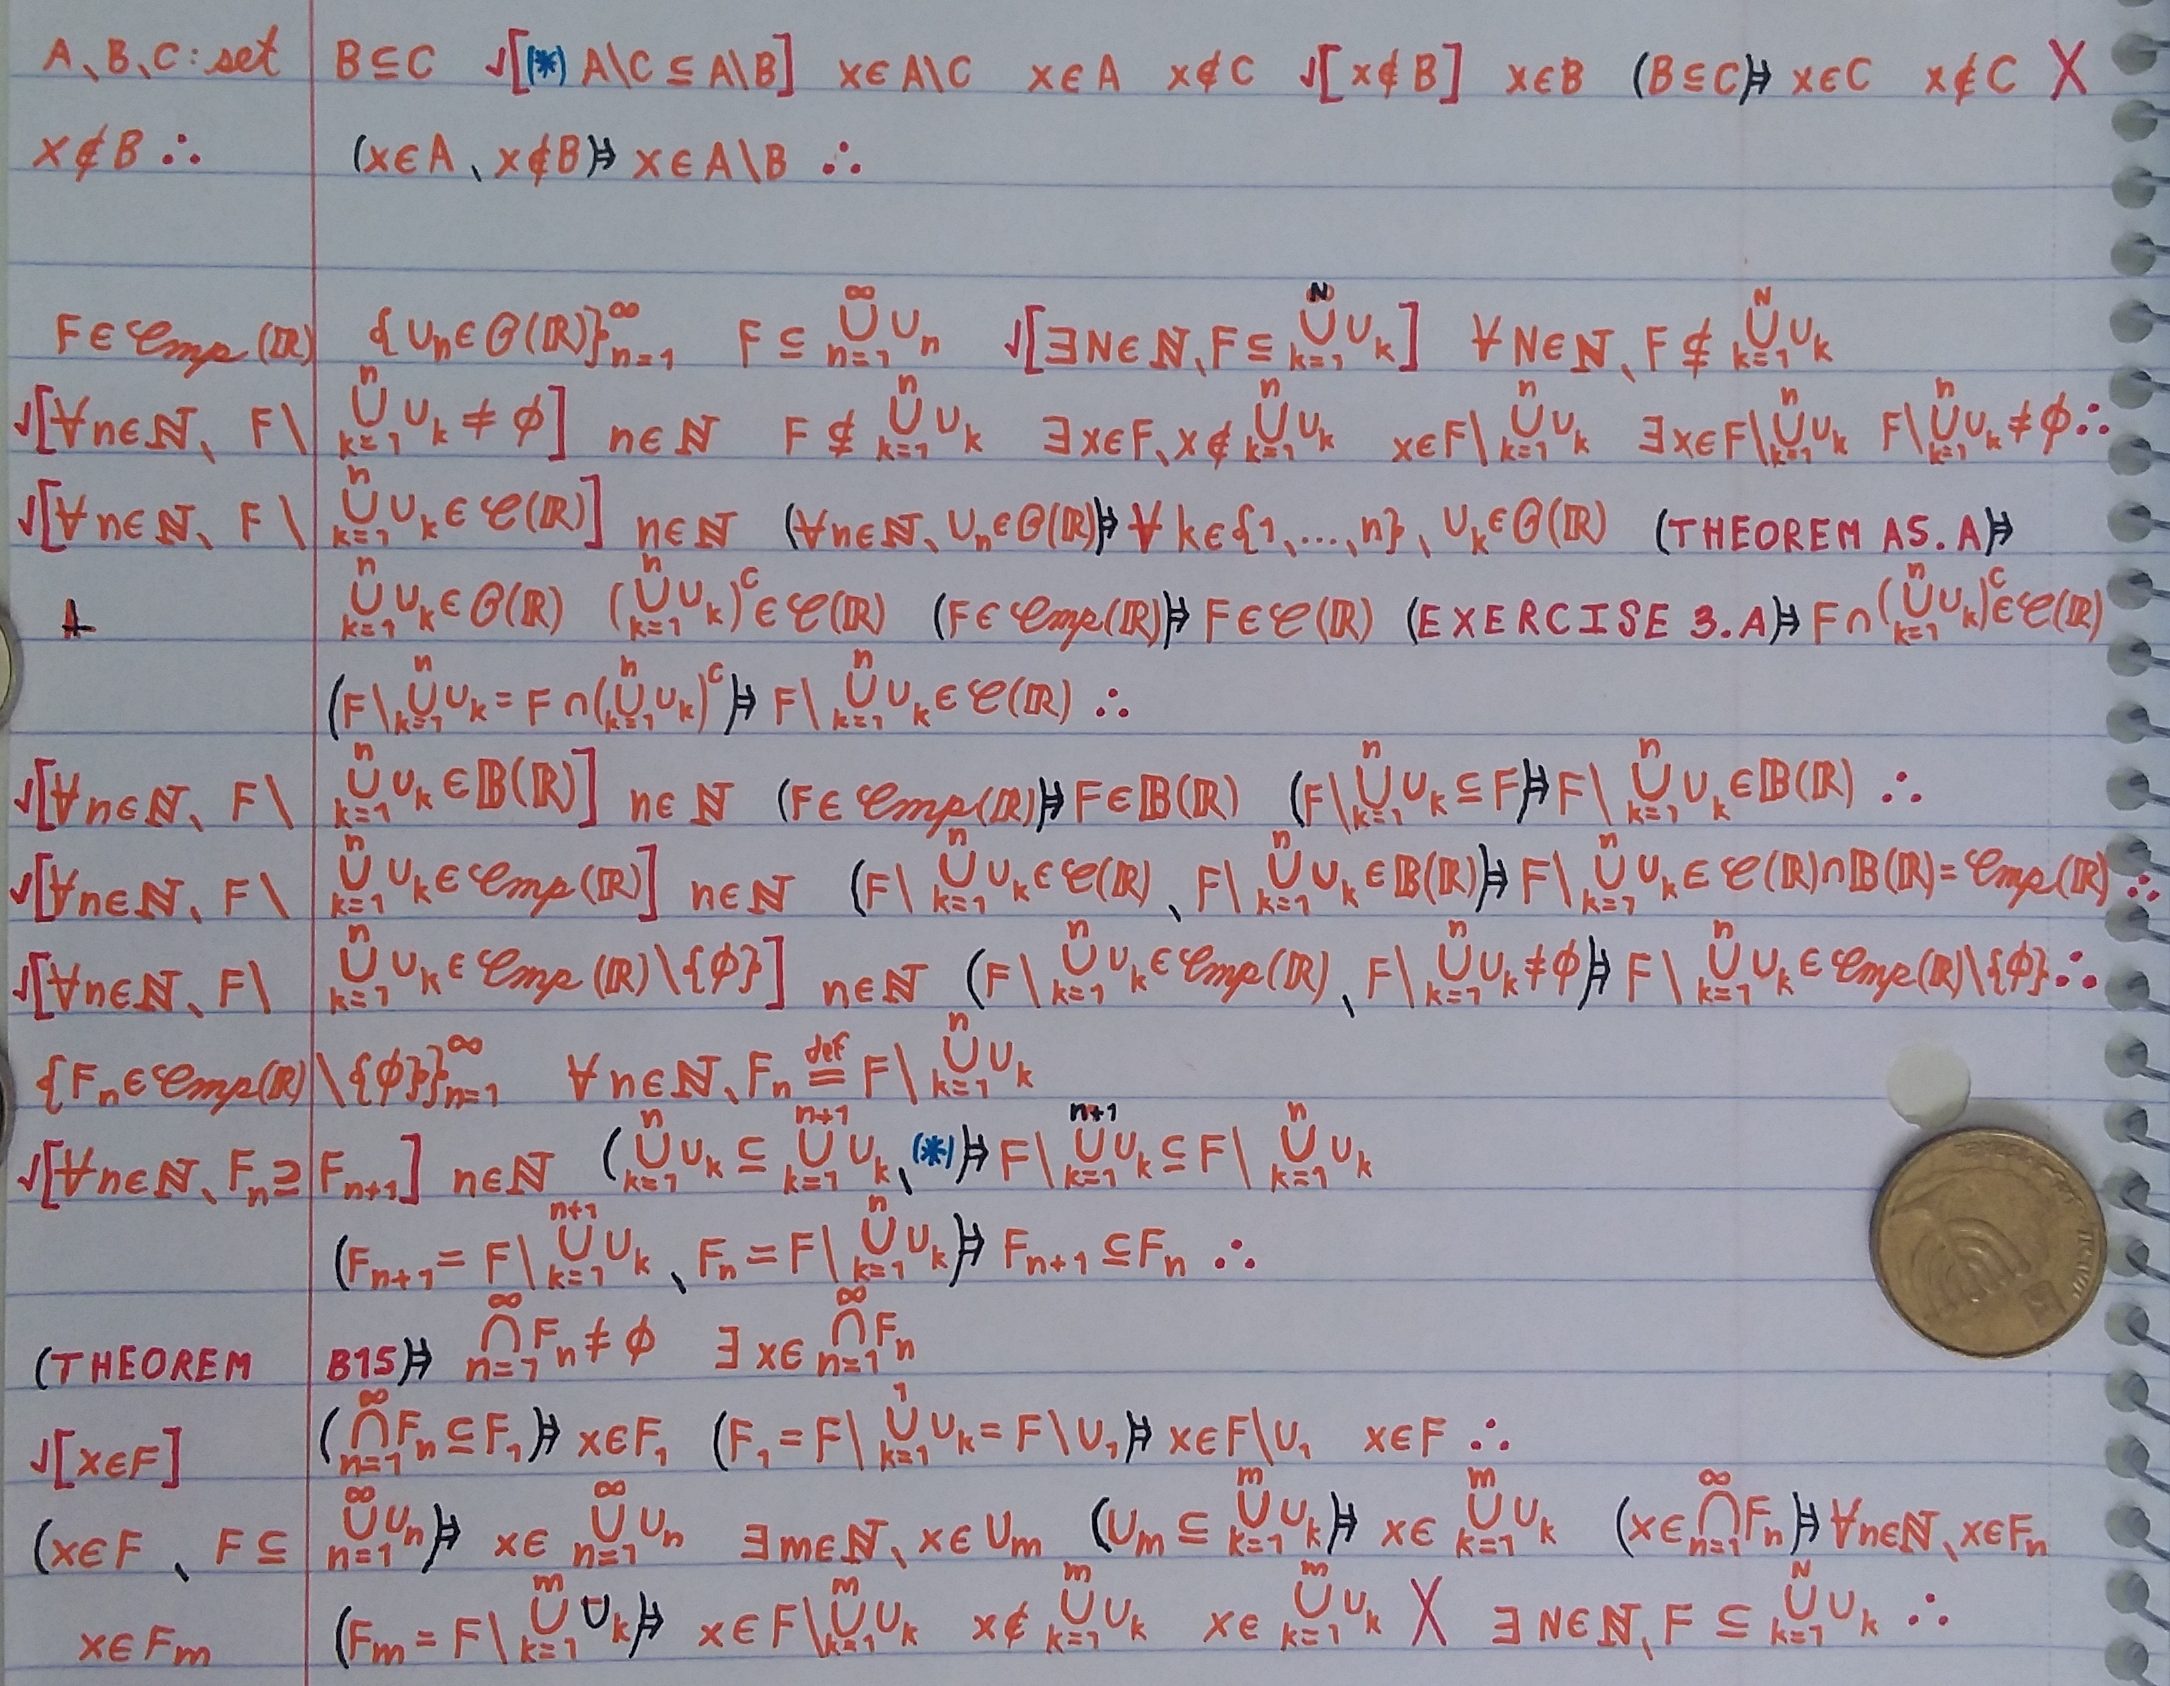 A、B、C: set B⊆C √[(*) A\C ⊆ A\B] x∈A\C x∈A x∉C √[x∉B] x∈B (B⊆C)⊫ x∈C x∉C X
x∉B ∴ (x∈A、x∉B)⊫ x∈A\B ∴
F∈𝒞mp(ℝ) {Uₙ∈𝒪(ℝ)}_{n=1}^∞ F ⊆ ⋃_{n=1}^∞ Uₙ √[∃N∈ℕ、F ⊆ ⋃_{k=1}^N U_k] ∀N∈ℕ、F ⊈ ⋃_{k=1}^N U_k
√[∀n∈ℕ、 F\⋃_{k=1}^n U_k ≠ ϕ] n∈ℕ F ⊈ ⋃_{k=1}^n U_k ∃x∈F、x∉⋃_{k=1}^n U_k x∈F\⋃_{k=1}^n U_k ∃x∈F\⋃_{k=1}^n U_k F\⋃_{k=1}^n U_k ≠ ϕ ∴
√[∀n∈ℕ、 F\⋃_{k=1}^n U_k ∈ 𝒞(ℝ)] n∈ℕ (∀n∈ℕ、Uₙ∈𝒪(ℝ))⊫ ∀k∈{1、...、n}、U_k∈𝒪(ℝ) (THEOREM A5.A)⊫
⋃_{k=1}^n U_k ∈ 𝒪(ℝ) (⋃_{k=1}^n U_k)^c ∈ 𝒞(ℝ) (F∈𝒞mp(ℝ))⊫ F∈𝒞(ℝ) (EXERCISE 3.A)⊫ F∩(⋃_{k=1}^n U_k)^c ∈ 𝒞(ℝ)
(F\⋃_{k=1}^n U_k = F∩(⋃_{k=1}^n U_k)^c)⊫ F\⋃_{k=1}^n U_k ∈ 𝒞(ℝ) ∴
√[∀n∈ℕ、 F\⋃_{k=1}^n U_k ∈ 𝔹(ℝ)] n∈ℕ (F∈𝒞mp(ℝ))⊫ F∈𝔹(ℝ) (F\⋃_{k=1}^n U_k ⊆ F)⊫ F\⋃_{k=1}^n U_k ∈ 𝔹(ℝ) ∴
√[∀n∈ℕ、 F\⋃_{k=1}^n U_k ∈ 𝒞mp(ℝ)] n∈ℕ (F\⋃_{k=1}^n U_k ∈ 𝒞(ℝ)、F\⋃_{k=1}^n U_k ∈ 𝔹(ℝ))⊫ F\⋃_{k=1}^n U_k ∈ 𝒞(ℝ)∩𝔹(ℝ) = 𝒞mp(ℝ) ∴
√[∀n∈ℕ、 F\⋃_{k=1}^n U_k ∈ 𝒞mp(ℝ)\{ϕ}] n∈ℕ (F\⋃_{k=1}^n U_k ∈ 𝒞mp(ℝ)、F\⋃_{k=1}^n U_k ≠ ϕ)⊫ F\⋃_{k=1}^n U_k ∈ 𝒞mp(ℝ)\{ϕ} ∴
{Fₙ∈𝒞mp(ℝ)\{ϕ}}_{n=1}^∞ ∀n∈ℕ、Fₙ ≝ F\⋃_{k=1}^n U_k
√[∀n∈ℕ、Fₙ ⊇ F_{n+1}] n∈ℕ (⋃_{k=1}^n U_k ⊆ ⋃_{k=1}^{n+1} U_k、(*))⊫ F\⋃_{k=1}^{n+1} U_k ⊆ F\⋃_{k=1}^n U_k
(F_{n+1} = F\⋃_{k=1}^{n+1} U_k、Fₙ = F\⋃_{k=1}^n U_k)⊫ F_{n+1} ⊆ Fₙ ∴
(THEOREM B15)⊫ ⋂_{n=1}^∞ Fₙ ≠ ϕ ∃x∈⋂_{n=1}^∞ Fₙ
√[x∈F] (⋂_{n=1}^∞ Fₙ ⊆ F₁)⊫ x∈F₁ (F₁ = F\⋃_{k=1}^1 U_k = F\U₁)⊫ x∈F\U₁ x∈F ∴
(x∈F、F ⊆ ⋃_{n=1}^∞ Uₙ)⊫ x∈⋃_{n=1}^∞ Uₙ ∃m∈ℕ、x∈U_m (U_m ⊆ ⋃_{k=1}^m U_k)⊫ x∈⋃_{k=1}^m U_k (x∈⋂_{n=1}^∞ Fₙ)⊫ ∀n∈ℕ、x∈Fₙ
x∈F_m (F_m = F\⋃_{k=1}^m U_k)⊫ x∈F\⋃_{k=1}^m U_k x∉⋃_{k=1}^m U_k x∈⋃_{k=1}^m U_k X ∃N∈ℕ、F ⊆ ⋃_{k=1}^N U_k ∴